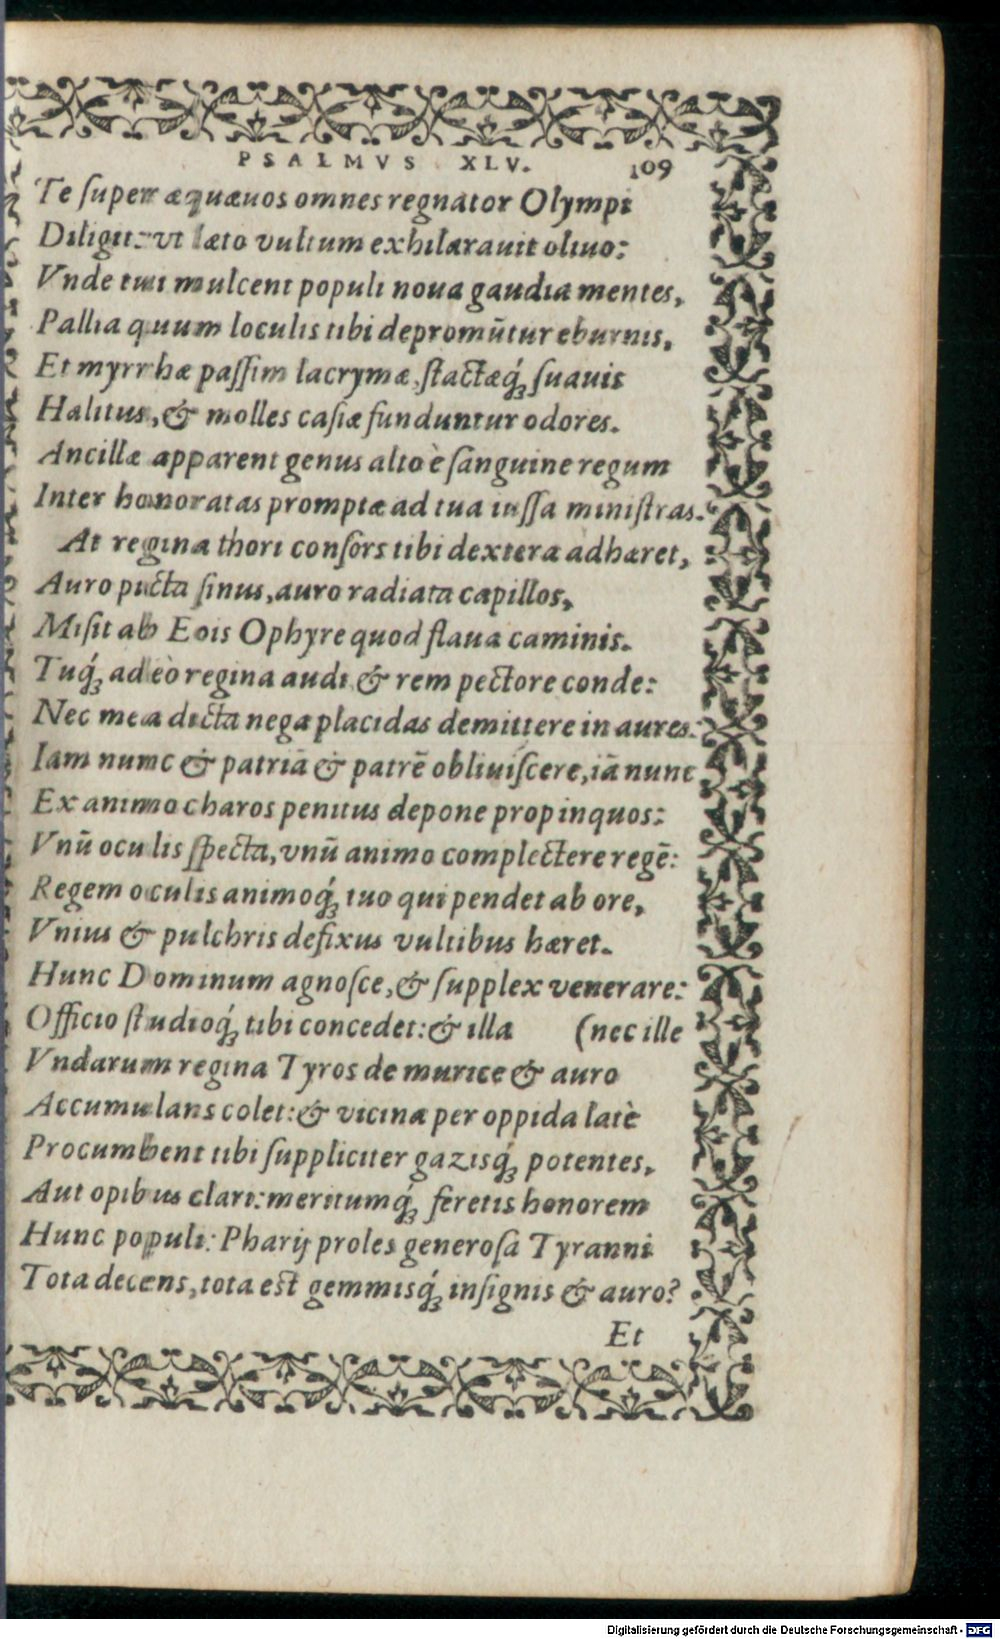 PSALMVS XLV. 109
Te ſuper æquæuos omnes regnator Olympi
Diligit: vt læto vultum exhilarauit oliuo:
Vnde tui mulcent populi noua gaudia mentes,
Pallia quum loculis tibi depromūtur eburnis,
Et myrrhæ paſſim lacrymæ, ſtactæq́ꝫ ſuauis
Halitus, & molles caſiæ funduntur odores.
Ancillæ apparent genus alto è ſanguine regum
Inter honoratas promptæ ad tua iuſſa miniſtras.
At regina thori conſors tibi dextera adhæret,
Auro picta ſinus, auro radiata capillos,
Miſit ab Eois Ophyre quod flaua caminis.
Tuq́ꝫ adeò regina audi & rem pectore conde:
Nec mea dicta nega placidas demittere in aures.
Iam nunc & patriā & patrē obliuiſcere, iā nunc
Ex animo charos penitus depone propinquos:
Vnū oculis ſpecta, vnū animo complectere regē:
Regem oculis animoq́ꝫ tuo qui pendet ab ore,
Vnius & pulchris defixus vultibus hæret.
Hunc Dominum agnoſce, & ſupplex venerare:
Officio ſtudioq́ꝫ tibi concedet: & illa (nec ille
Vndarum regina Tyros de murice & auro
Accumulans colet: & vicina per oppida latè
Procumbent tibi ſuppliciter gazisq́ꝫ potentes,
Aut opibus clari: meritumq́ꝫ feretis honorem
Hunc populi: Pharij proles generoſa Tyranni
Tota decens, tota est gemmisq́ꝫ inſignis & auro?
Et
Digitalisierung gefördert durch die Deutsche Forschungsgemeinschaft - DFG